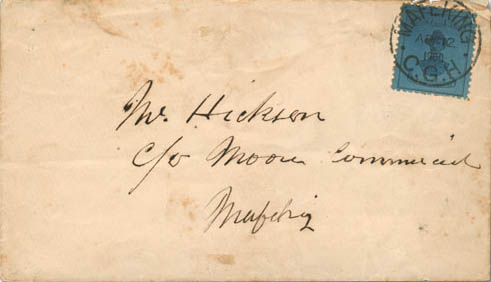 MAFEKING
AP 12
1900
C.G.H
Mr. Hickson
c/o Moore Commercial
Mafeking